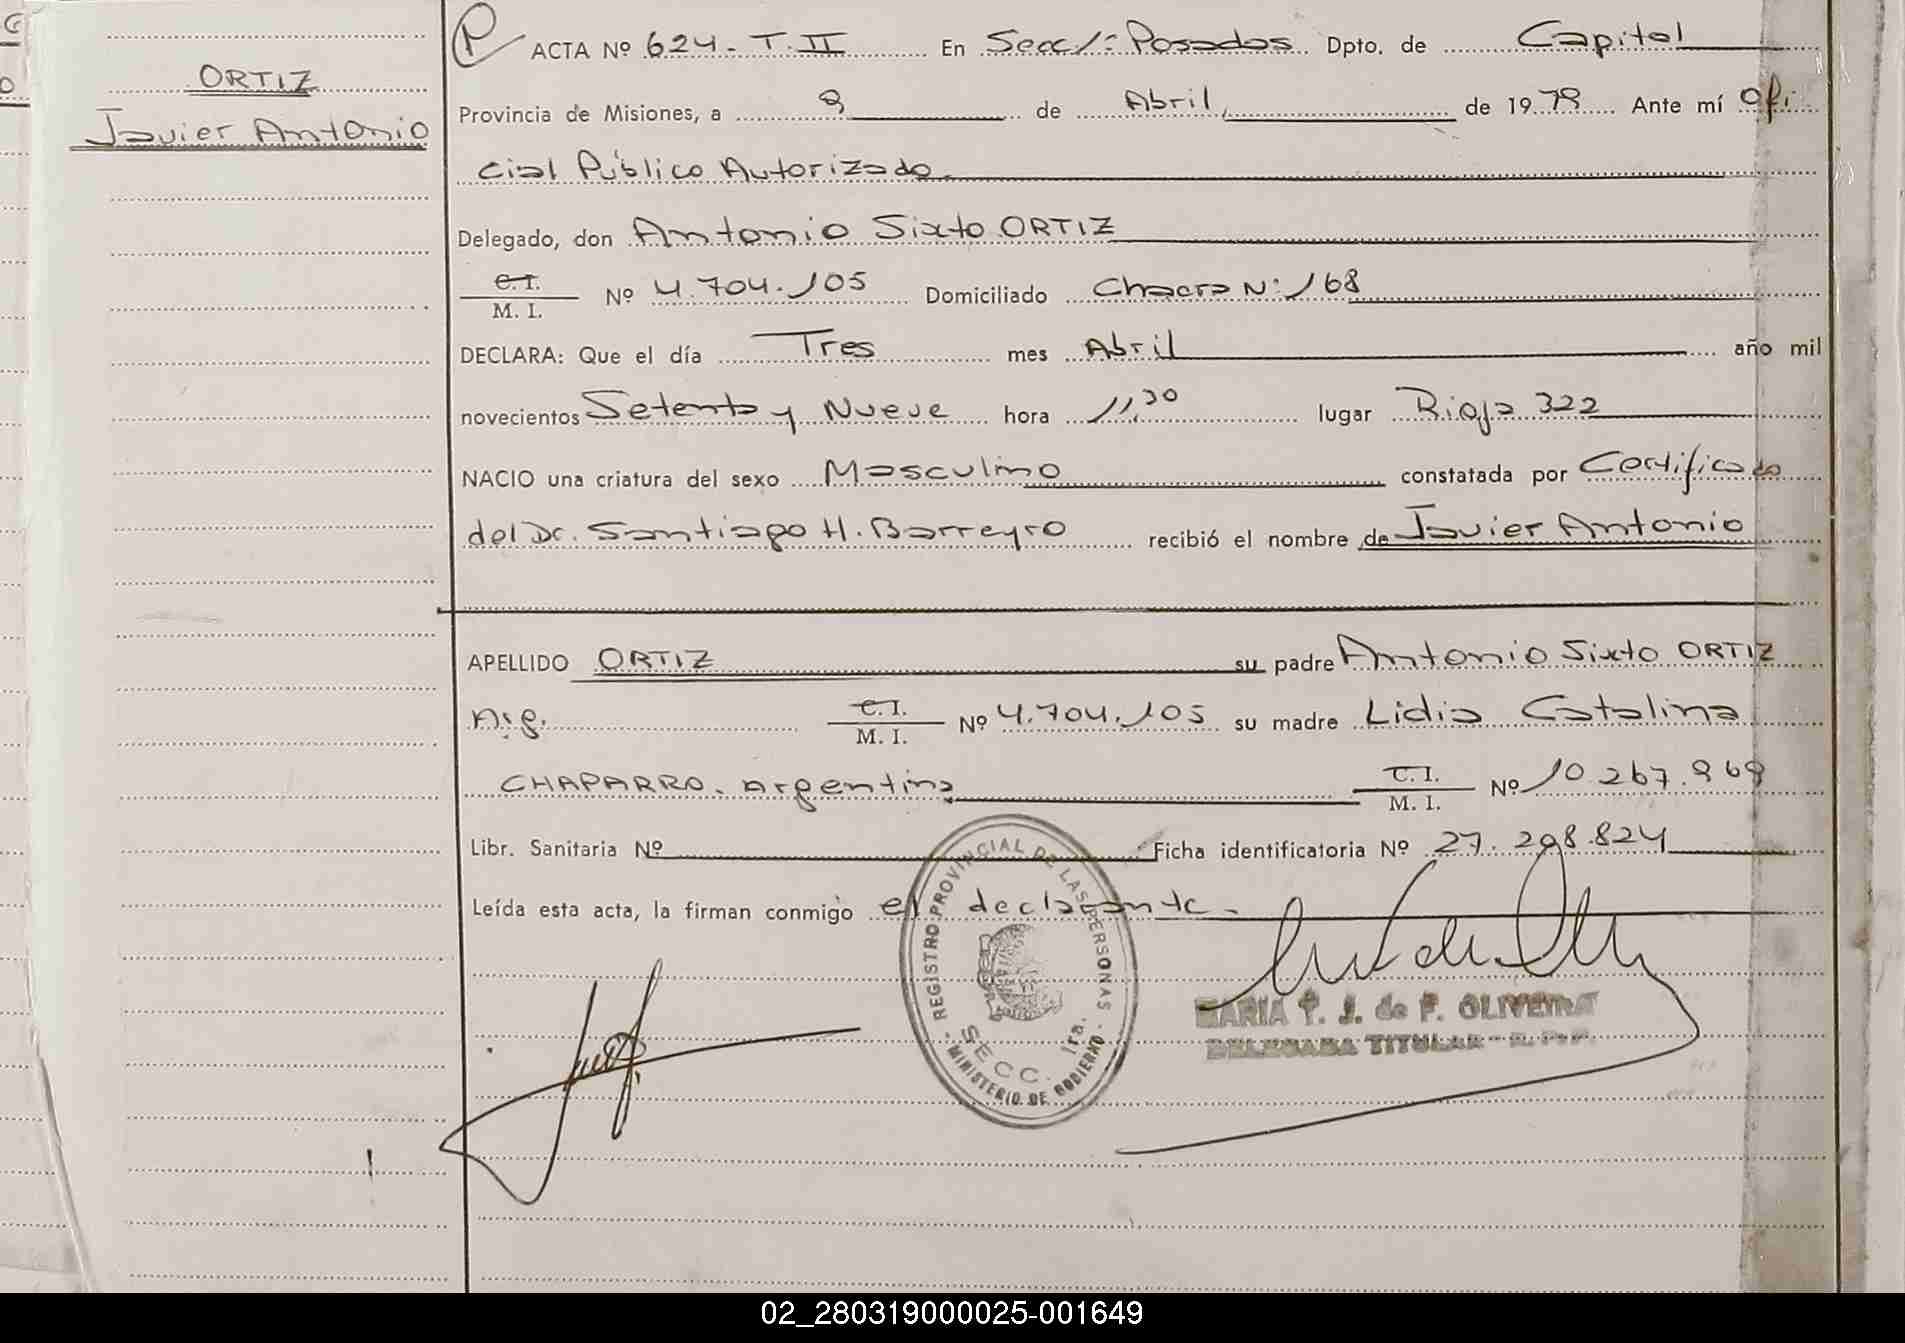 ORTIZ
Javier Antonio
P ACTA Nº 624- T. II En Secc 1: Posadas Dpto. de Capital
Provincia de Misiones, a 9 de Abril, de 1979 Ante mí Ofi
cial Público Autorizado.
Delegado, don Antonio Sixto ORTIZ
C.I. / M. I. Nº 4.704.105 Domiciliado Chacra Nº 168
DECLARA: Que el día Tres mes Abril año mil
novecientos Setenta y Nueve hora 11,30 lugar Rioja 322
NACIO una criatura del sexo Masculino constatada por Certificado
del Dr. Santiago H. Barreyro recibió el nombre de Javier Antonio
APELLIDO ORTIZ su padre Antonio Sixto ORTIZ
Arg. C.I. / M. I. Nº 4.704.105 su madre Lidia Catalina
CHAPARRO. Argentina C.I. / M. I. Nº 10.267.969
Libr. Sanitaria Nº Ficha identificatoria Nº 27.298.824
Leída esta acta, la firman conmigo el declarante -
REGISTRO PROVINCIAL DE LAS PERSONAS
SECC. 1ra.
- MINISTERIO DE GOBIERNO -
MARIA T. J. de F. OLIVEIRA
DELEGADA TITULAR - R. P. P.
02_280319000025-001649